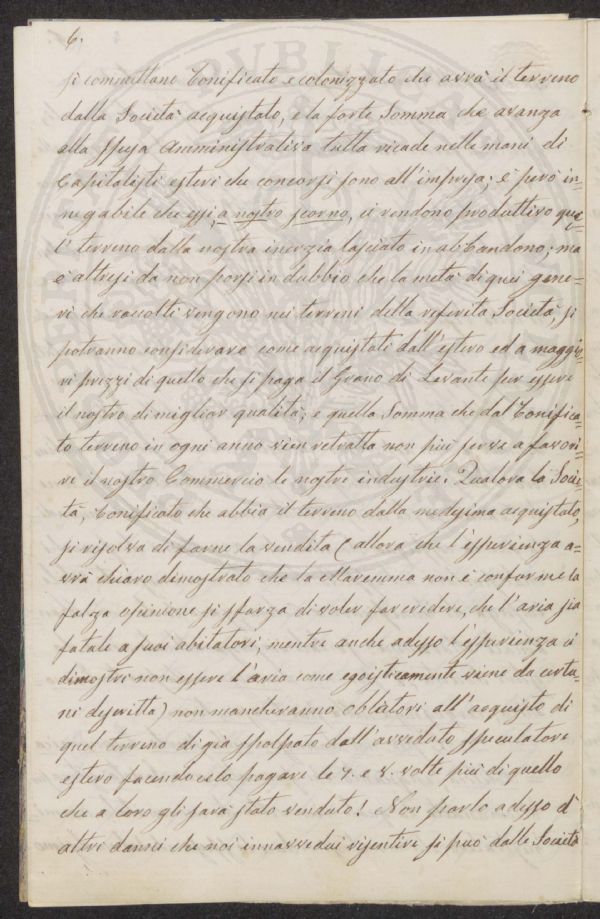 6.
si committano. Bonificato e colonizzato che avrà il terreno
dalla Società acquistato, e la forte Somma che avanza
alla spesa Amministrativa tutta ricade nelle mani di
Capitalisti esteri che concorsi sono all'impresa; e però in=
negabile che essi, a nostro scorno, ci rendono produttivo quel=
l' terreno dalla nostra inerzia lasciato in abbandono; ma
è altresì da non porsi in dubbio che la metà di quei gene=
ri che raccolti vengono nei terreni della referita Società, si
potranno considerare come acquistati dall'estero ed a maggio=
ri prezzi di quello che si paga il Grano di Levante per essere
il nostro di miglior qualità; e quella Somma che dal Bonifica=
to terreno in ogni anno vien retratta non più serve a favori=
re il nostro Commercio le nostre industrie. Qualora la Socie=
tà, bonificato che abbia il terreno dalla medesima acquistato,
si risolva di farne la vendita (allora che l'esperienza a=
vrà chiaro dimostrato che la Maremma non è conforme la
falsa opinione si sforza di voler far credere, che l'aria sia
fatale a suoi abitatori; mentre anche adesso l'esperienza ci
dimostri non essere l'aria come egoisticamente viene da certu=
ni descritta) non mancheranno oblatori all'acquisto di
quel terreno di già spolpato dall'avveduto speculatore
estero facendocelo pagare le 7. e 8. volte più di quello
che a loro gli sarà stato venduto! Non parlo adesso d'
altri danni che noi innavvedui risentire si può dalle Società